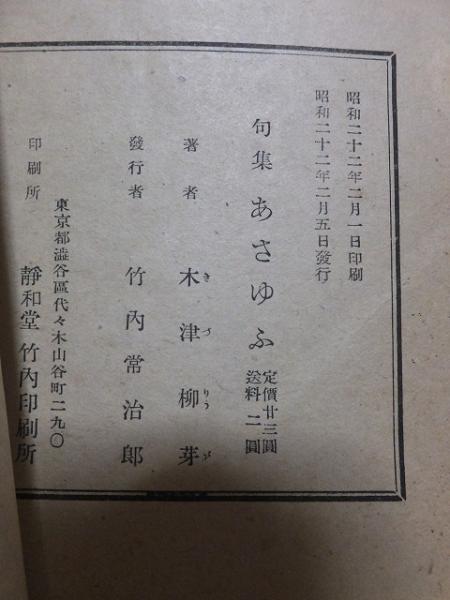 昭和二十二年二月一日印刷
昭和二十二年二月五日發行
句集 あさゆふ
定價廿三圓
送料二圓
著者 木津柳芽
きづりうが
發行者 竹內常治郎
東京都澁谷區代々木山谷町二九〇
印刷所 靜和堂 竹內印刷所